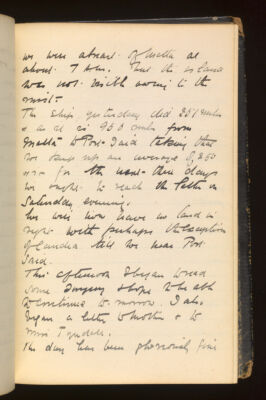 we were abreast of Malta at
about 7 A.m. But the island
was not visible owing to the
mist.
The ship yesterday did 351 miles
& as it is 950 miles from
Malta to Port Said taking that
we keep up an average of 350
for the next three days
we ought to reach the Port on
Saturday evening.
We will now have no land in
sight with perhaps the exception
of Candia till we near Port
Said.
This afternoon I began to read
some Surgery & hope to be able
to continue to-morrow. I also
began a letter to mother & to
Miss Tyndall.
The day has been gloriously fine